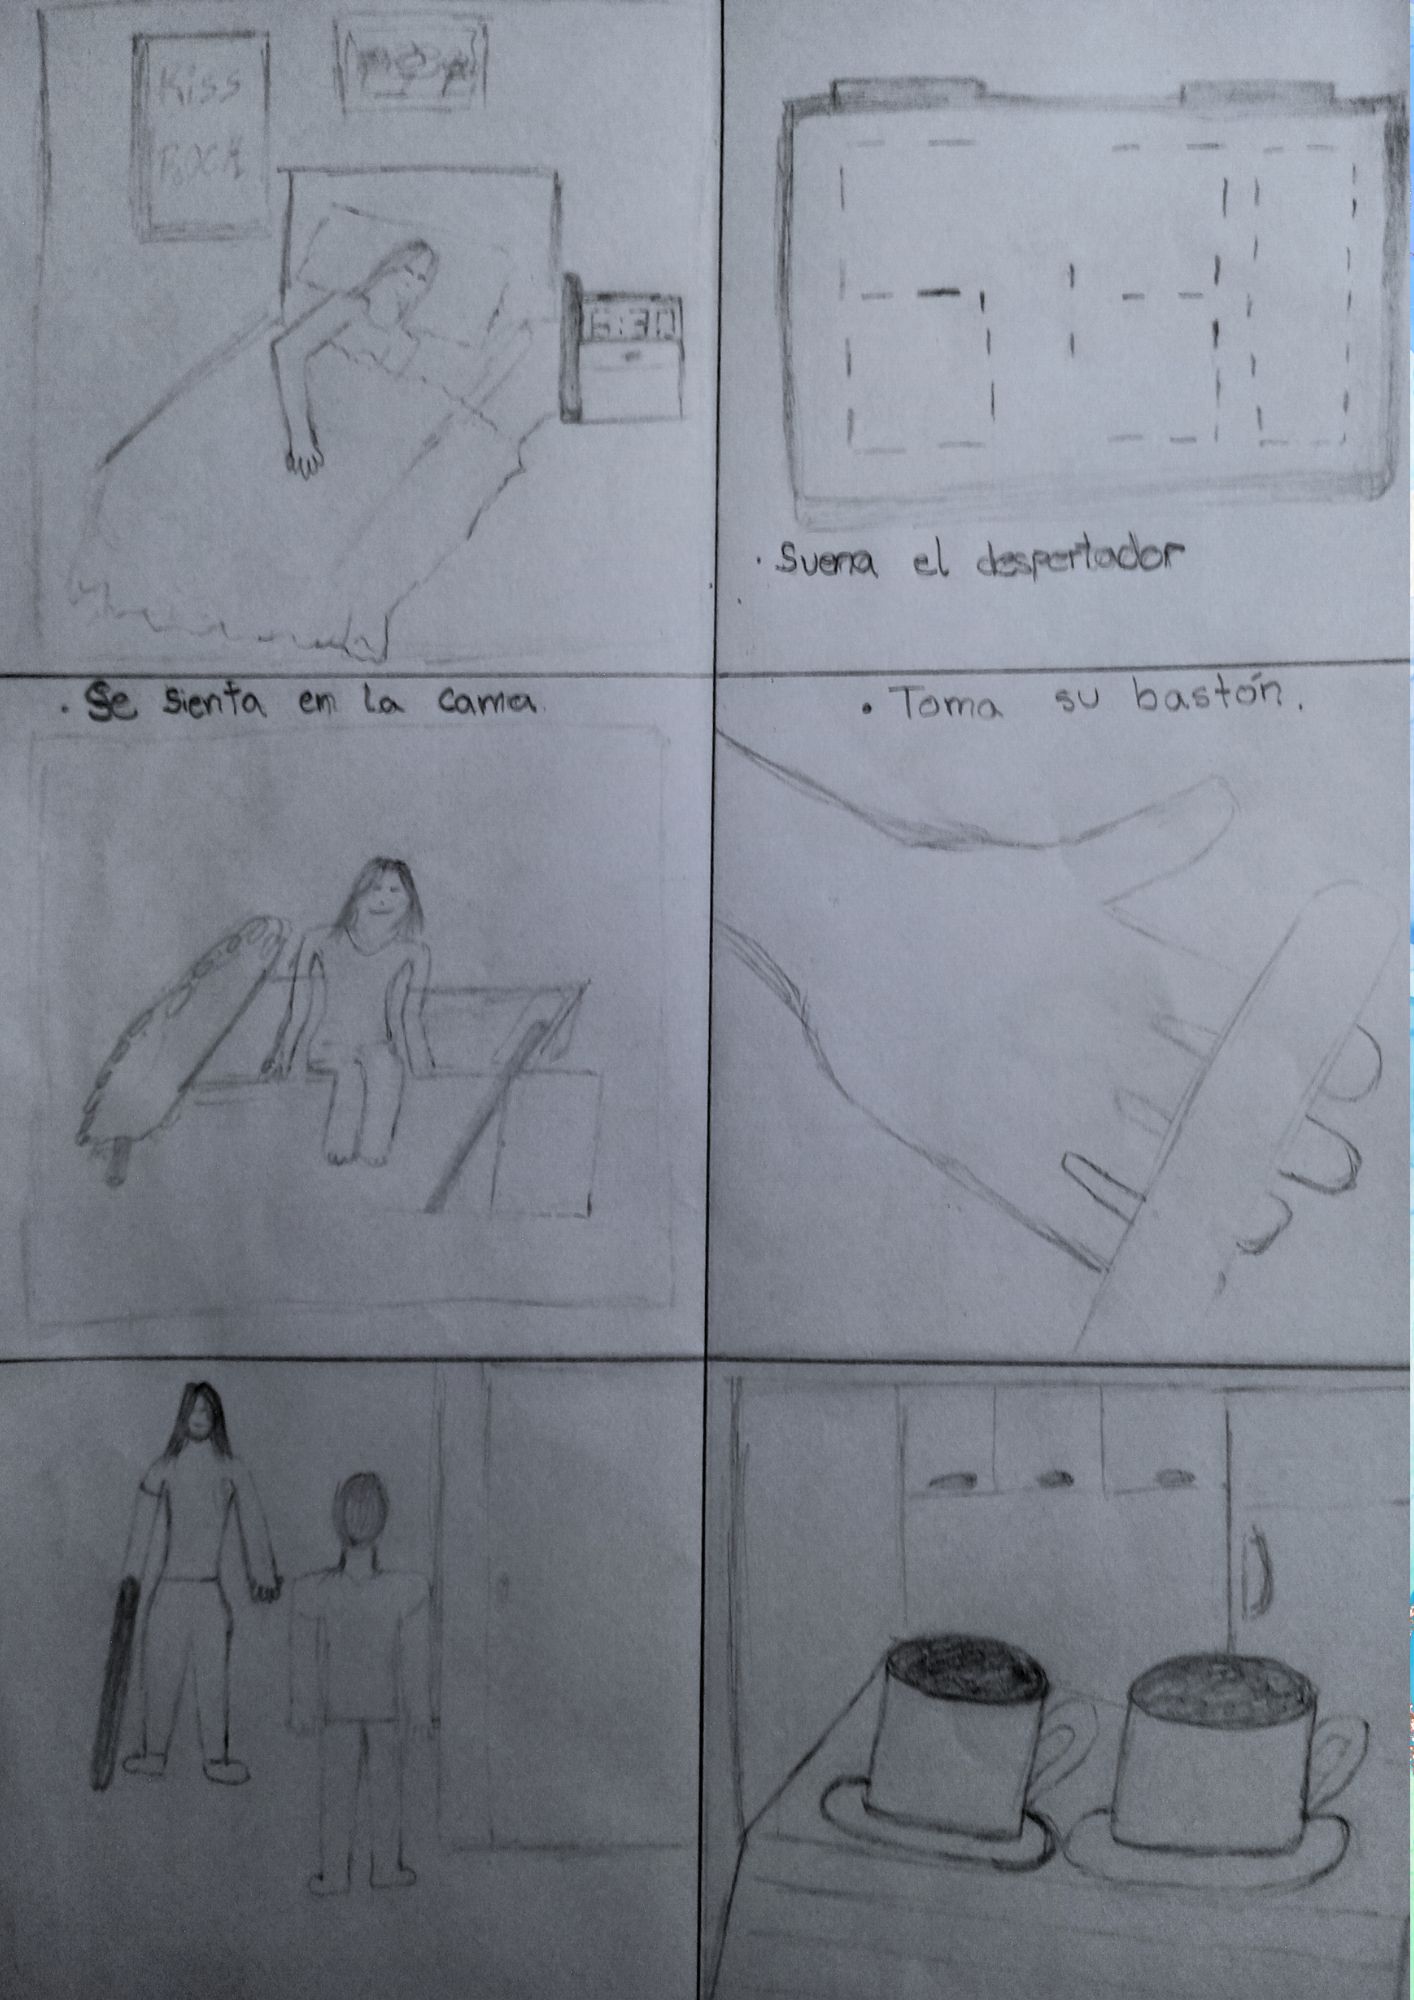 Kiss
ROCK
6:30
6:30
. Suena el despertador
. Se sienta en la cama.
. Toma su bastón.